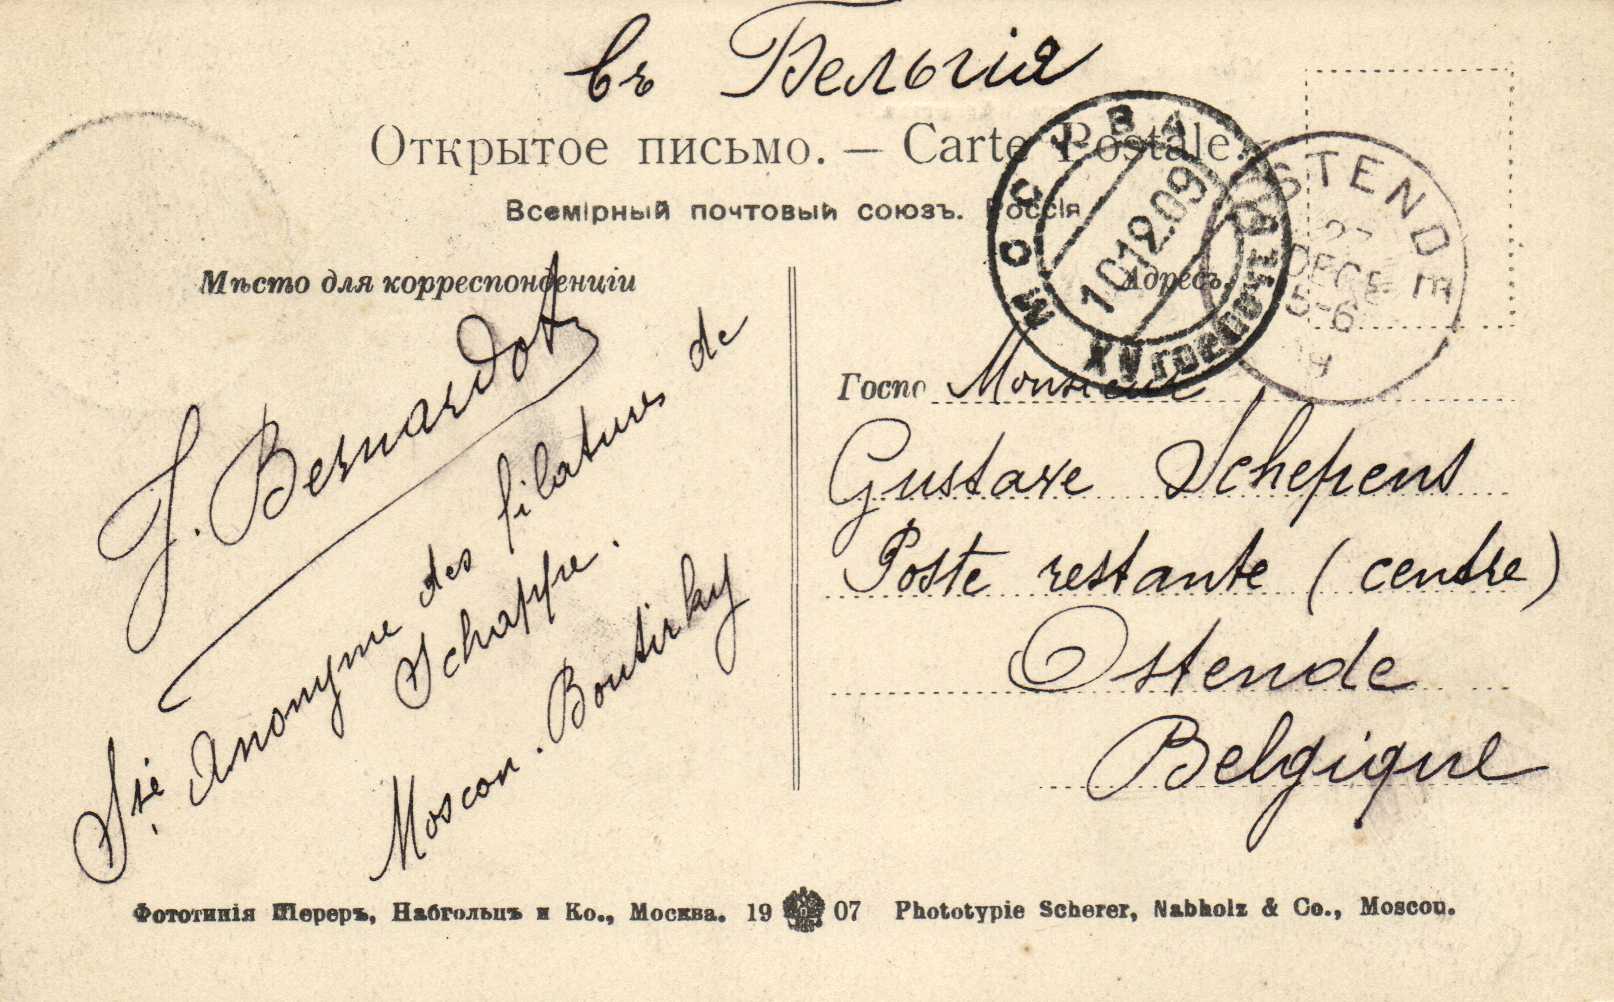 въ Бельгія
Открытое письмо. — Carte Postale.
Всемірный почтовый союзъ. Россія
МОСКВА
10.12.09
OSTENDE
27
DECE
5-6
Мѣсто для корреспонденціи
Адресъ.
J. Bernardot
Sté. Anonyme des filatures de
Schappe.
Moscou. Boutirky
Госпо Monsieur
Gustave Schepens
Poste restante (centre)
Ostende
Belgique
Фототипія Шереръ, Набгольцъ и Ко., Москва. 1907 Phototypie Scherer, Nabholz & Co., Moscou.